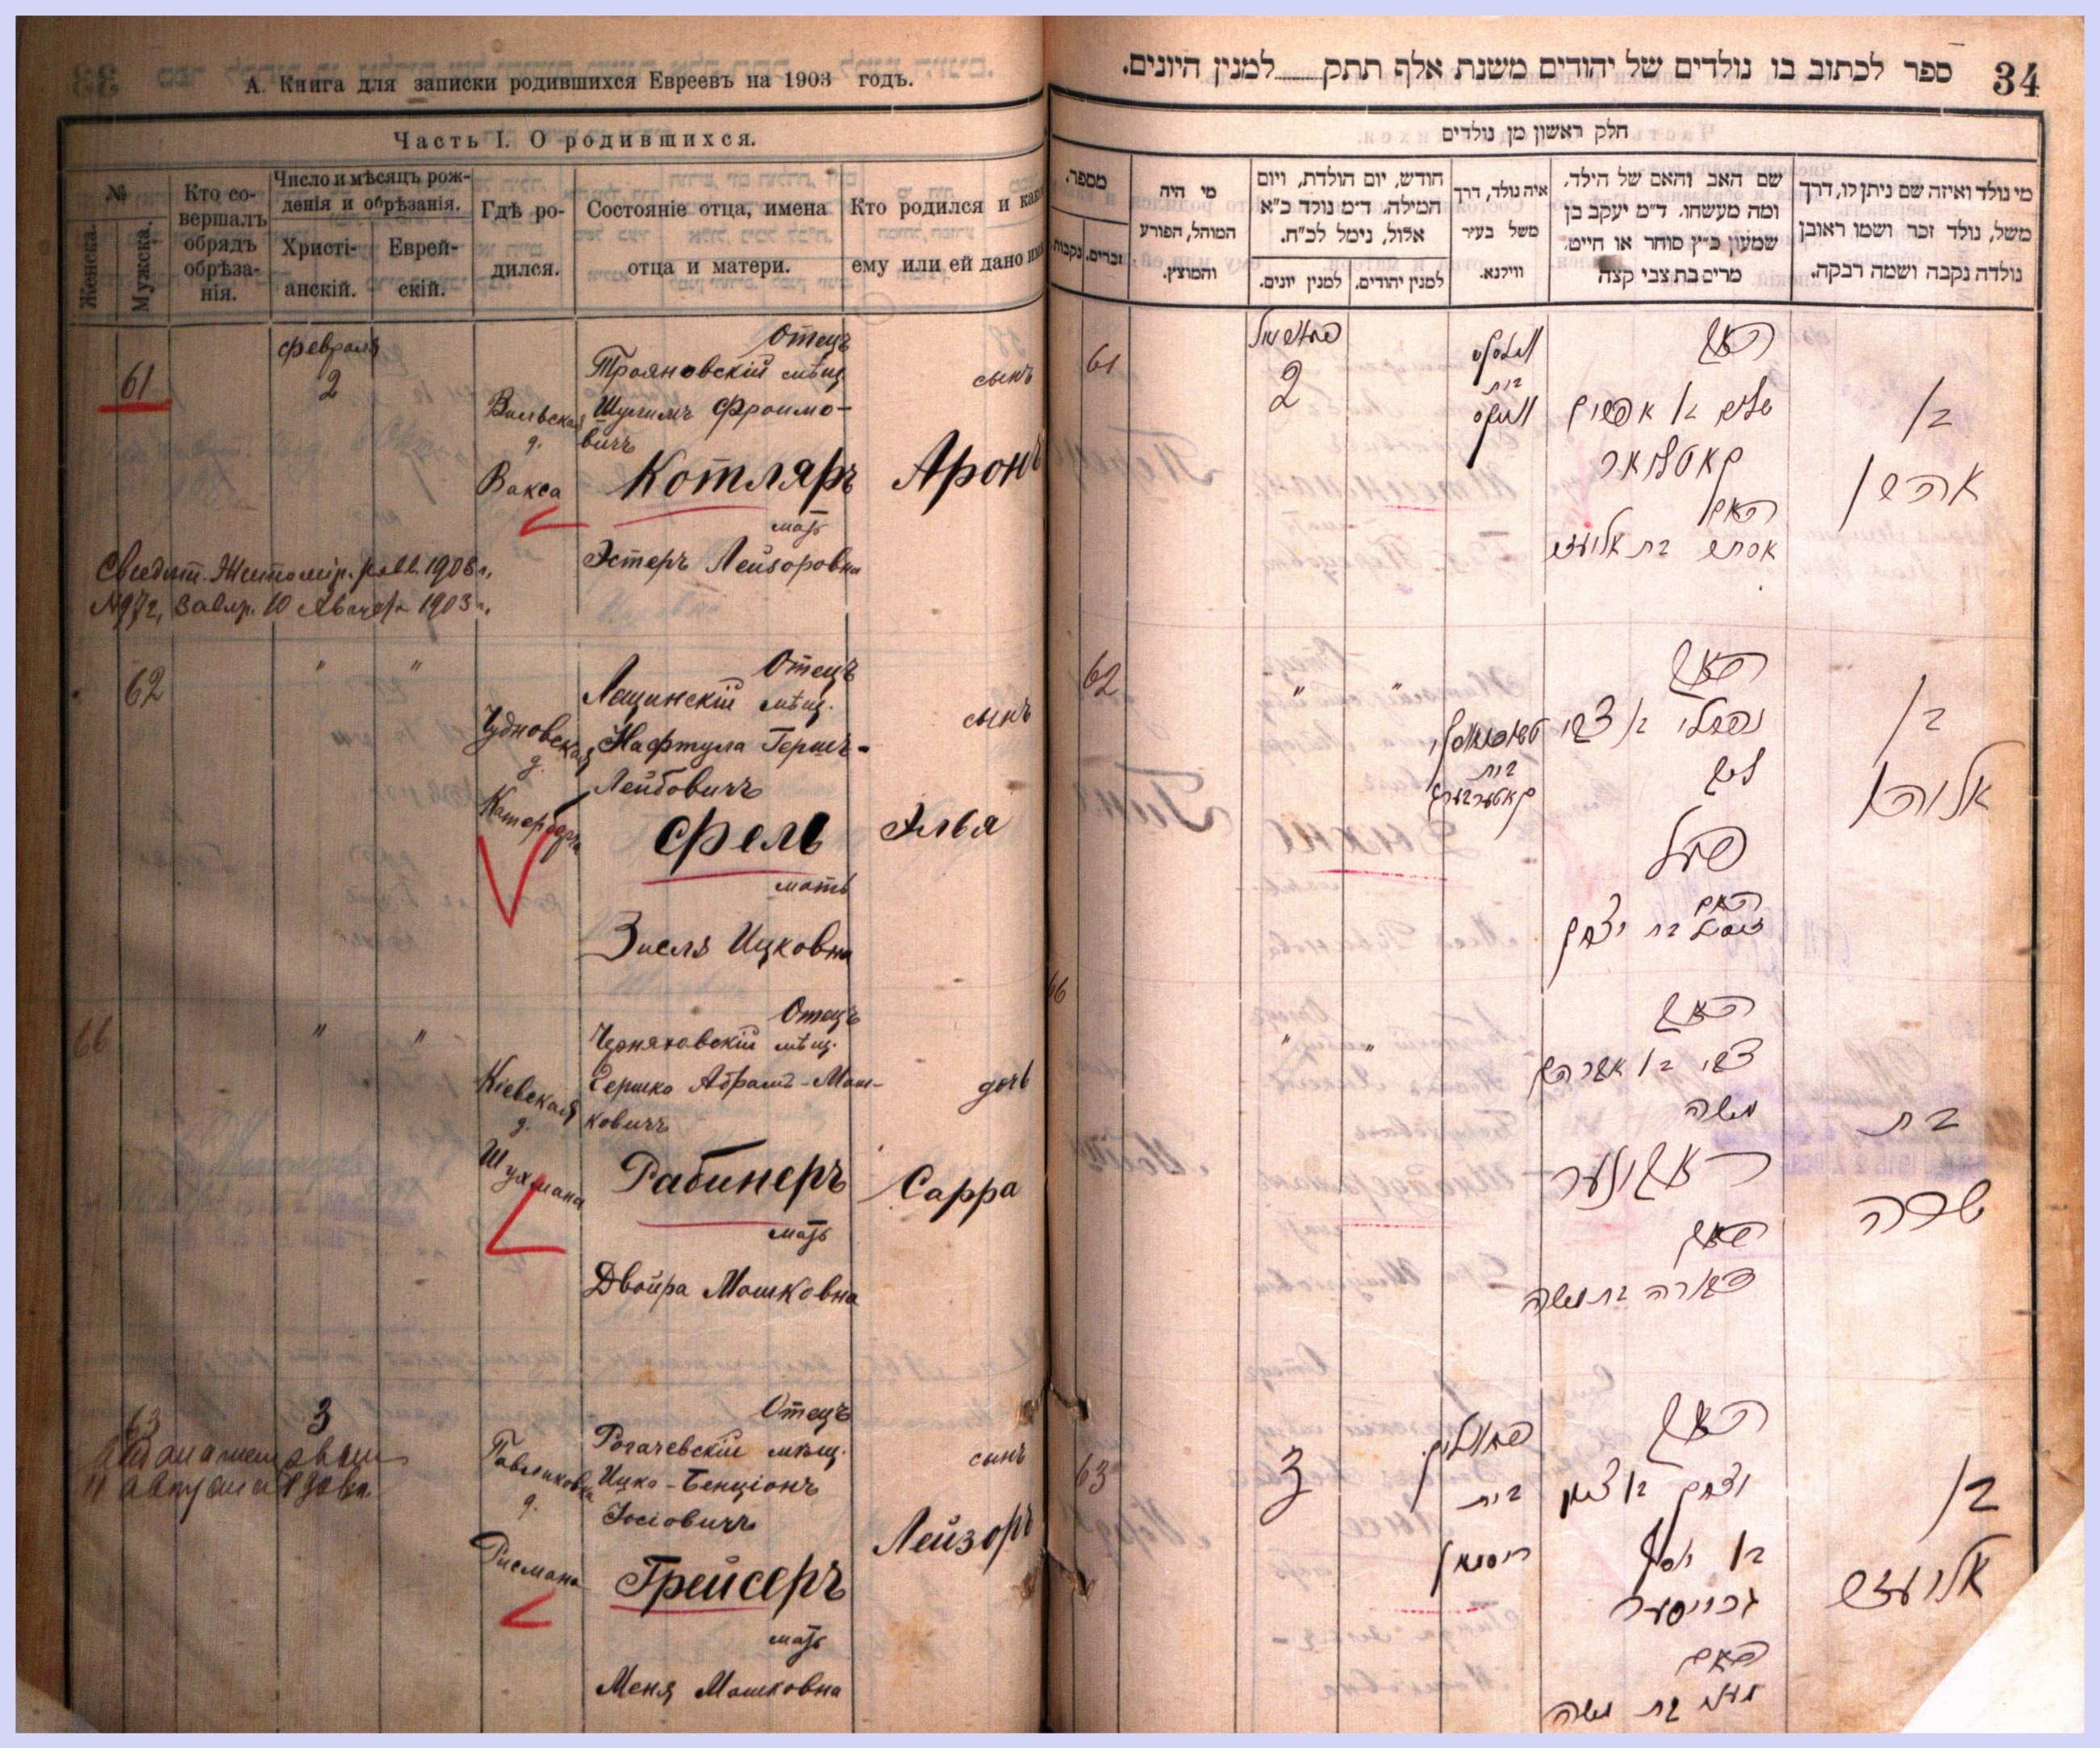 А. Книга для записки родившихся Евреевъ на 1903 годъ.
Часть I. О родившихся.
№
Женска.
Мужска.
Кто со-
вершалъ
обрядъ
обрѣза-
нія.
Число и мѣсяцъ рож-
денія и обрѣзанія.
Христі-
анскій.
Еврей-
скій.
Гдѣ ро-
дился.
Состояніе отца, имена
отца и матери.
Кто родился и како
ему или ей дано имя
61
февраля
2
Вильская
д.
Вакса
Отецъ
Трояновскій мѣщ.
Шулимъ Фроимо-
вичъ
Котляръ
мать
Эстеръ Лейзоровна
сынъ
Аронъ
Свидѣт. Житомір. 1903 г.
10 1903 г.
62
"
"
Чудновская
д.
Катерберга
Отецъ
Лещинскій мѣщ.
Нафтула Гершъ-
Лейбовичъ
Фель
мать
Зисля Ицковна
сынъ
Элья
66
"
"
Кіевская
д.
Шухмана
Отецъ
Черняховскій мѣщ.
Гершко Абрамъ-Мош-
ковичъ
Рабинеръ
мать
Двойра Мошковна
дочь
Сарра
63
3
11 августа
д.
Рисмана
Отецъ
Рогачевскій мѣщ.
Ицко-Бенціонъ
Іосіовичъ
Грейсеръ
мать
Меня Мошковна
сынъ
Лейзоръ
34
ספר לכתוב בו נולדים של יהודים משנת אלף תתק למנין היונים.
חלק ראשון מן נולדים
מספר.
זכרים.
נקבות.
מי היה
המוהל, הפורע
והמוצץ.
חודש, יום הולדת, ויום
המילה. ד״מ נולד כ״א
אלול, נימל לכ״ח.
למנין יונים.
למנין יהודים.
איה נולד, דרך
משל בעיר
ווילנא.
שם האב והאם של הילד,
ומה מעשהו. ד״מ יעקב בן
שמעון כ״ץ סוחר או חייט,
מרים בת צבי קצה
מי נולד ואיזה שם ניתן לו, דרך
משל, נולד זכר ושמו ראובן
נולדה נקבה ושמה רבקה.
61
2
בית
האב
שלום בן אפרים
קאטליאר
האם
אסתר בת אליעזר
בן
אהרן
62
"
"
בית
קאטערבערג
האב
נפתלי בן צבי
ליב
פעל
האם
זיסיל בת יצחק
בן
אליהו
66
"
"
האב
צבי בן אברהם
משה
ראבינער
האם
דבורה בת משה
בת
שרה
63
3
בית
ריסמאן
האב
יצחק בן ציון
בן יוסף
גרייסער
האם
מעניא בת משה
בן
אליעזר